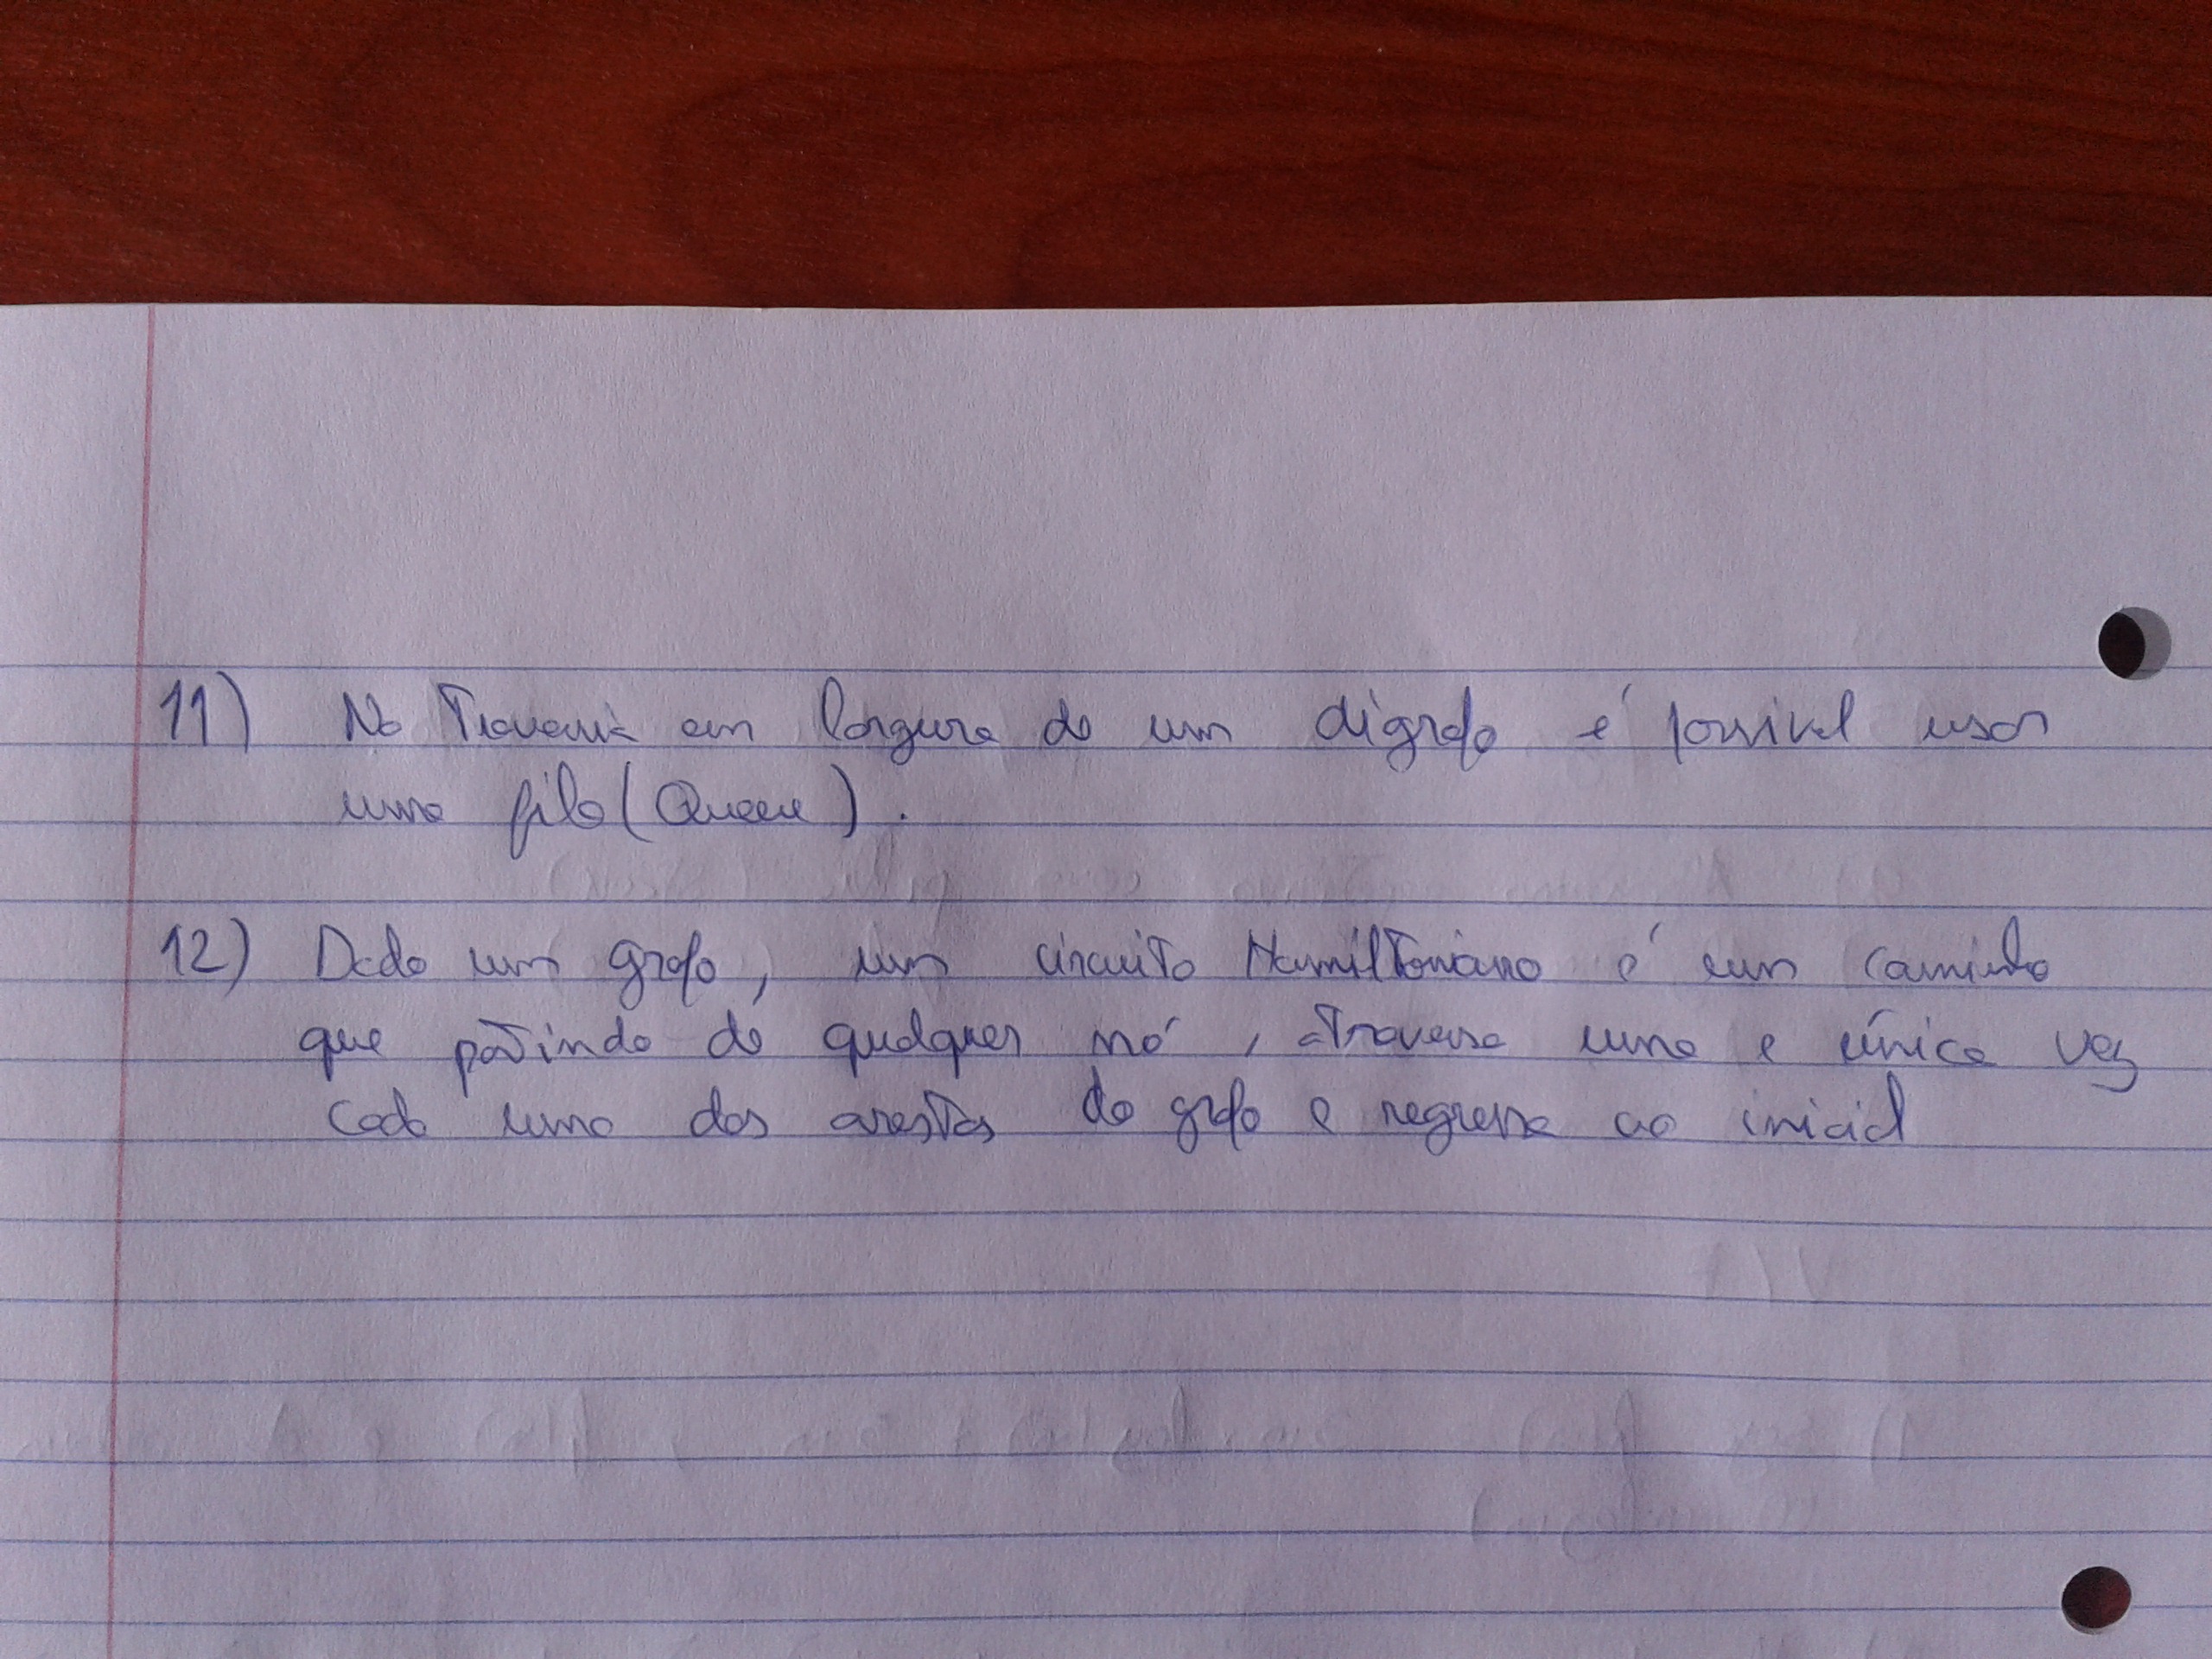 11) Na Travessia em largura de um digrafo é possivel usar
uma fila (Queue).
12) Dado um grafo, um circuito Hamiltoniano é um caminho
que partindo de qualquer nó, atravessa uma e única vez
cada uma das arestas do grafo e regressa ao inicial